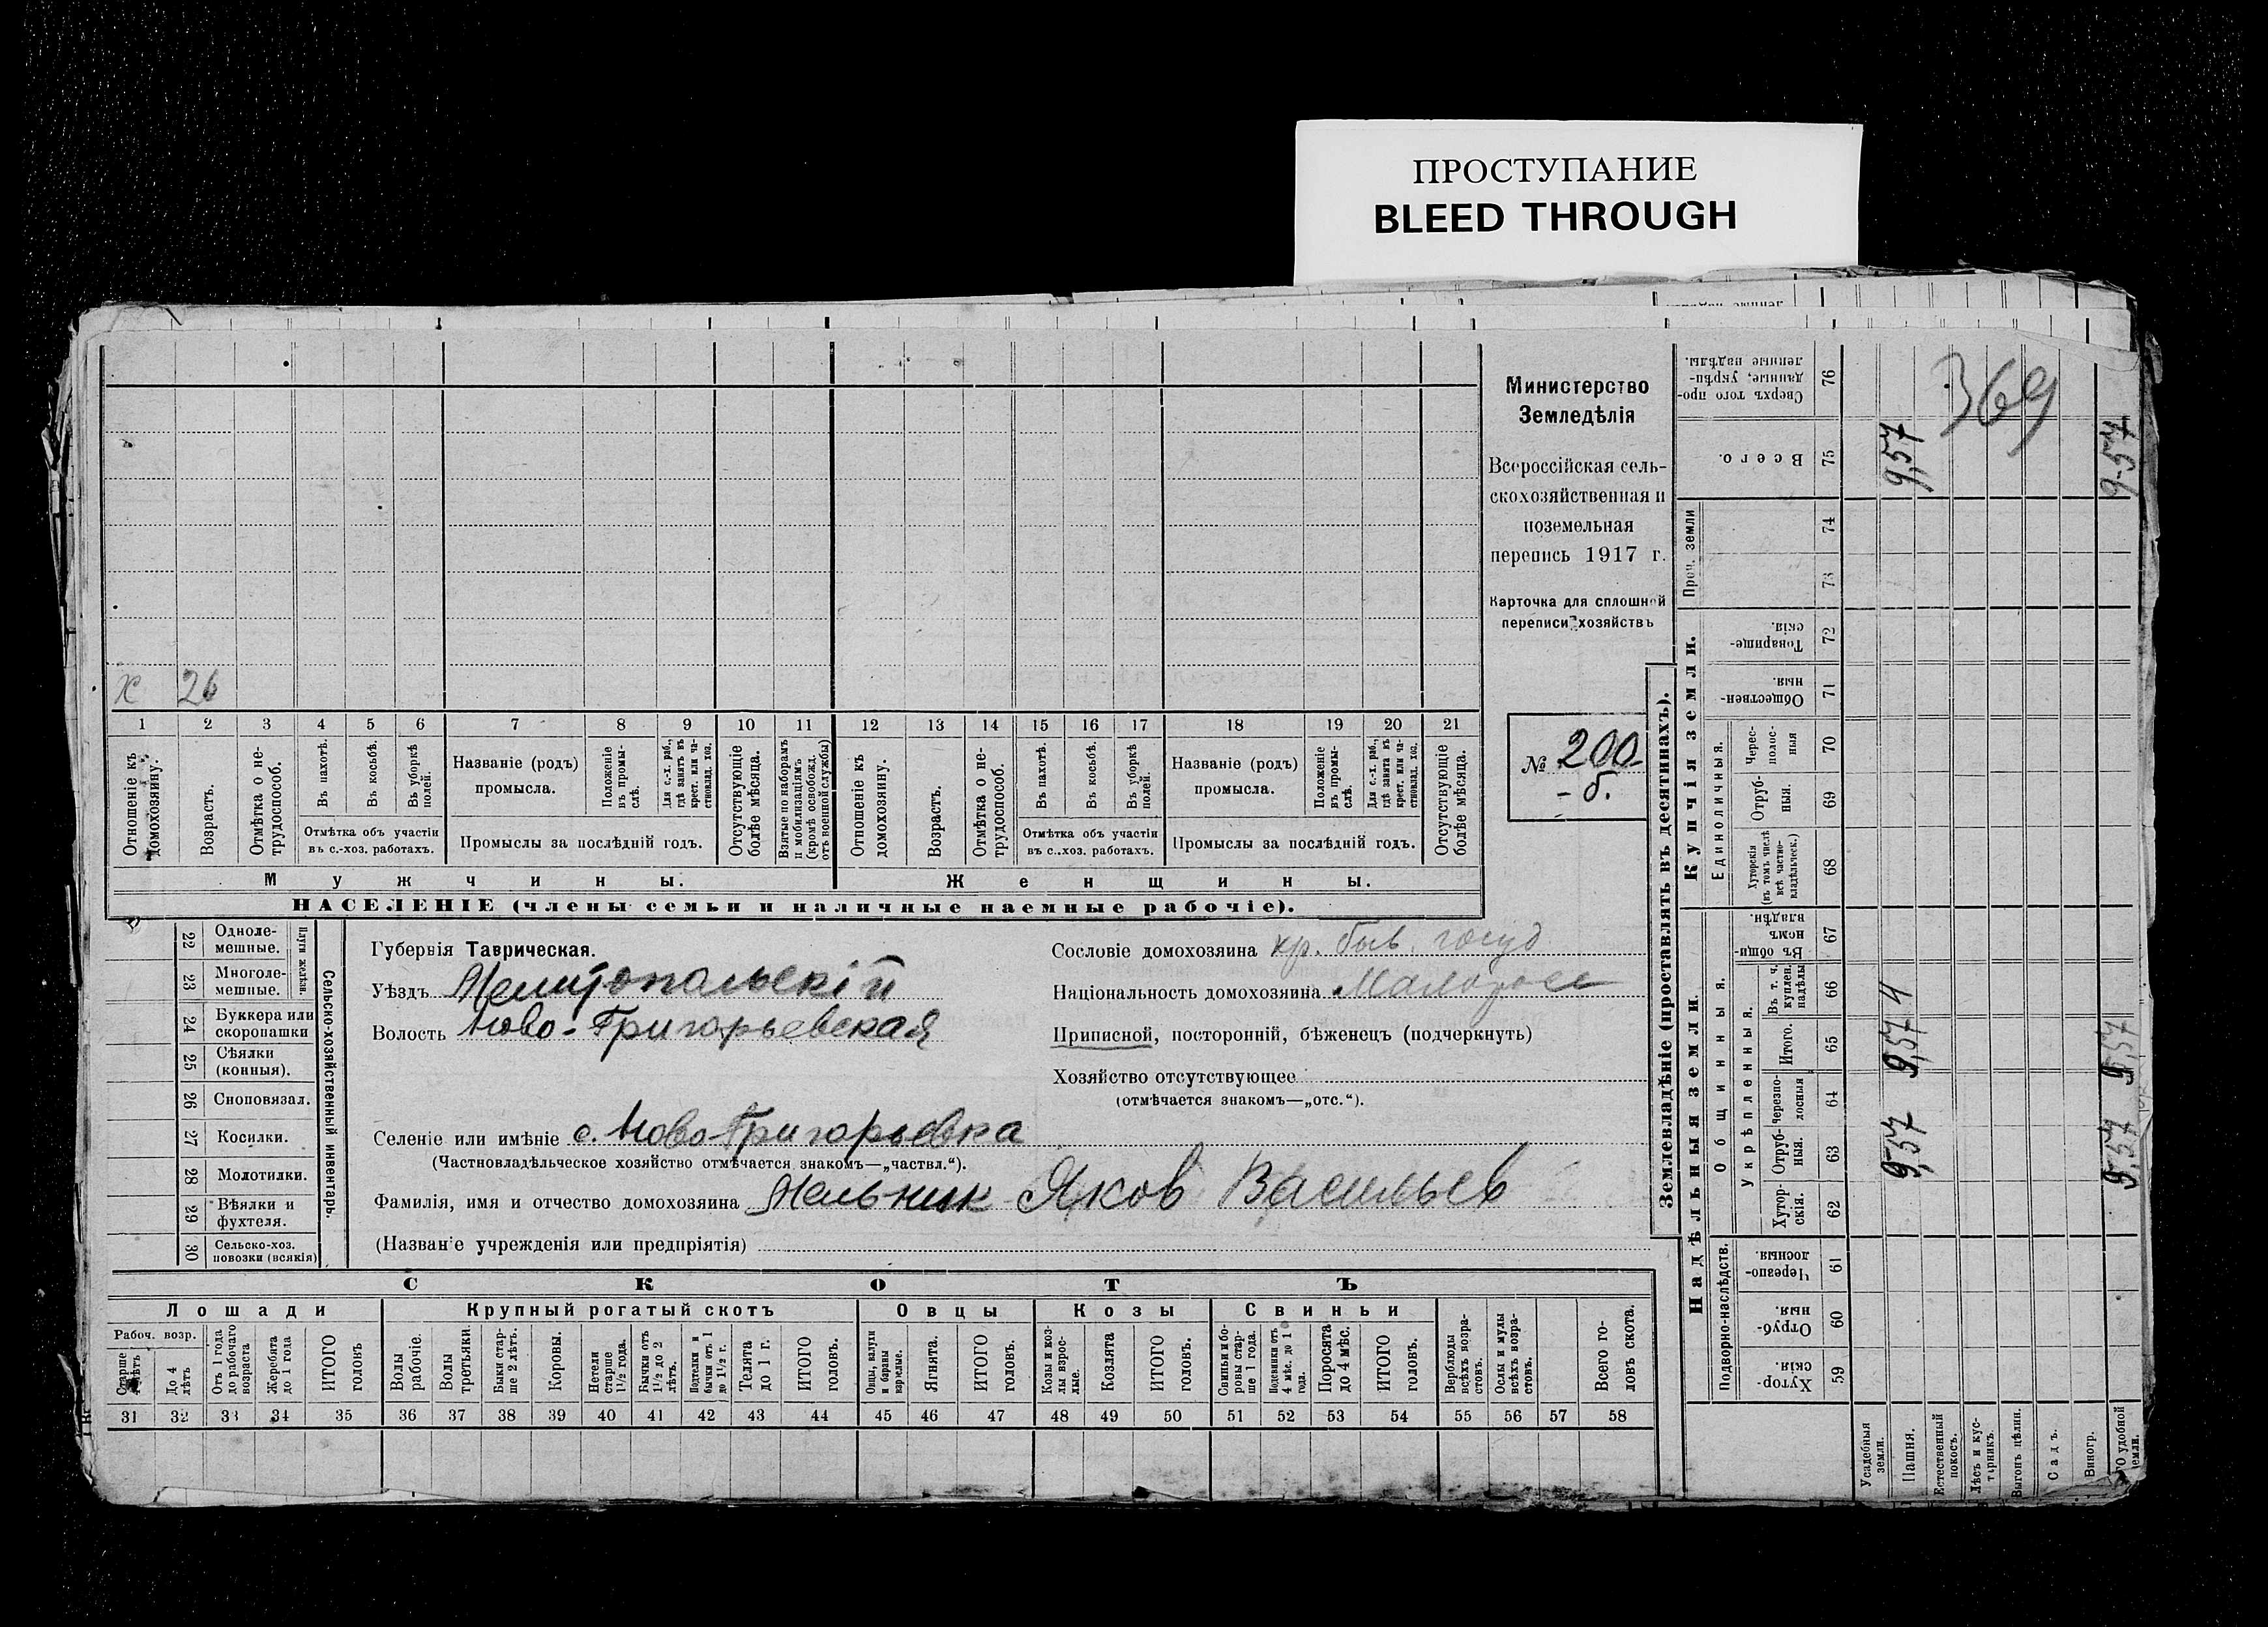 ПРОСТУПАНИЕ
BLEED THROUGH
Министерство
Земледѣлія
Всероссійская сель-
скохозяйственная и
поземельная
перепись 1917 г.
Карточка для сплошной
переписи хозяйствъ
№ 200
- б.
х 26
1 2 3 4 5 6 7 8 9 10 11 12 13 14 15 16 17 18 19 20 21
Отношеніе къ домохозяину.
Возрастъ.
Отмѣтка о не-трудоспособ.
Въ пахотѣ.
Въ косьбѣ.
Въ уборкѣ полей.
Отмѣтка объ участіи
въ с.-хоз. работахъ.
Названіе (родъ)
промысла.
Положеніе въ промы-слѣ.
Для с.-х. раб., гдѣ занятъ въ крест. или ча-стновлад. хоз.
Промыслы за послѣдній годъ.
Отсутствующіе болѣе мѣсяца.
Взятые по наборамъ и мобилизаціямъ (кромѣ освобожд. отъ военной службы)
Отношеніе къ домохозяину.
Возрастъ.
Отмѣтка о не-трудоспособ.
Въ пахотѣ.
Въ косьбѣ.
Въ уборкѣ полей.
Отмѣтка объ участіи
въ с..хоз. работахъ.
Названіе (родъ)
промысла.
Положеніе въ промы-слѣ.
Для с.-х. раб., гдѣ занята въ крест. или ча-стновлад. хоз.
Промыслы за послѣдній годъ.
Отсутствующіе болѣе мѣсяца.
Мужчины.
Женщины.
НАСЕЛЕНІЕ (члены семьи и наличные наемные рабочіе).
22 Одноле-мешные.
23 Многоле-мешные.
Плуги желѣзн.
24 Буккера или скоропашки
25 Сѣялки (конныя).
26 Сноповязал.
27 Косилки.
28 Молотилки.
29 Вѣялки и фухтеля.
30 Сельско-хоз. повозки (всякія)
Сельско-хозяйственный инвентарь.
Губернія Таврическая.
Уѣздъ Мелитопольскій
Волость Ново-Григорьевская
Сословіе домохозяина кр. быв. госуд
Національность домохозяина Малоросс
Приписной, посторонній, бѣженецъ (подчеркнуть)
Хозяйство отсутствующее
(отмѣчается знакомъ—„отс.“).
Селеніе или имѣніе с. Ново-Григорьевка
(Частновладѣльческое хозяйство отмѣчается знакомъ—„частвл.“).
Фамилія, имя и отчество домохозяина Мельник Яков Васильев
(Названіе учрежденія или предпріятія)
СКОТЪ
Лошади
Крупный рогатый скотъ
Овцы
Козы
Свиньи
Рабоч. возр.
Старше лѣтъ
До 4 лѣтъ
Отъ 1 года до рабочаго возраста
Жеребята до 1 года
ИТОГО головъ
Волы рабочіе.
Волы третьяки.
Быки стар-ше 2 лѣтъ.
Коровы.
Нетели старше 1½ года.
Бычки отъ 1½ до 2 лѣтъ.
Подтелки и бычки отъ 1 до 1½ г.
Телята до 1 г.
ИТОГО головъ.
Овцы, валухи и бараны взрослые.
Ягнята.
ИТОГО головъ.
Козы и коз-лы взрос-лые.
Козлята
ИТОГО головъ.
Свиньи и бо-ровы стар-ше 1 года.
Подсвинки отъ 4 мѣс. до 1 года.
Поросята до 4 мѣс.
ИТОГО головъ.
Верблюды всѣхъ возра-стовъ.
Ослы и мулы всѣхъ возра-стовъ.
Всего го-ловъ скота.
31 32 33 34 35 36 37 38 39 40 41 42 43 44 45 46 47 48 49 50 51 52 53 54 55 56 57 58
Землевладѣніе (проставлять въ десятинахъ).
Купчія земли.
Надѣльныя земли.
Проч. земли
Сверхъ того про-данные, укрѣп-ленные надѣлы. 76
Всего. 75 9,57 9-57
369
74
73
Товарище-скія. 72
Обществен-ныя. 71
Единоличныя.
Черес-полос-ныя 70
Отруб-ныя. 69
Хуторскія (въ томъ числѣ всѣ частно-владѣльческ.) 68
Общинныя.
Въ общи-номъ владѣн. 67
Укрѣпленныя.
Въ т. ч. куплен. надѣлы 66 4
Итого. 65 9,57 9,57
Черезпо-лосныя 64
Отруб-ныя. 63 9,57 9,57
Хутор-скія. 62
Подворно-наслѣдств.
Черезпо-лосныя 61
Отруб-ныя. 60
Хутор-скія. 59
Усадебныя земли.
Пашня.
Естественный покосъ.
Лѣсъ и кус-тарникъ.
Выгонъ цѣлин.
Садъ.
Виногр.
удобной земли.